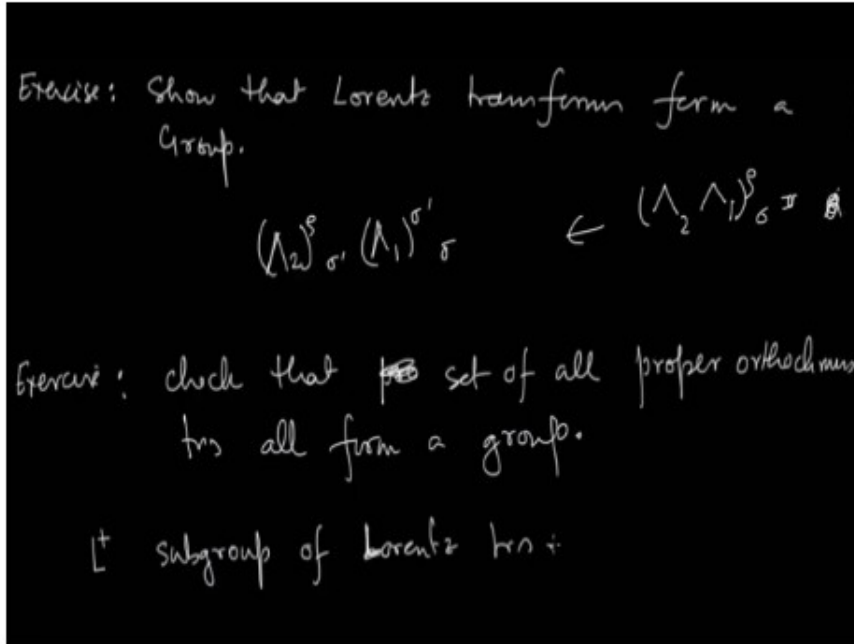 Exercise: Show that Lorentz transforms form a
Group.
(Λ₂)^ρ_σ' (Λ₁)^σ'_σ ← (Λ₂ Λ₁)^ρ_σ =
Exercise: check that set of all proper orthochronous
trns all form a group.
L⁺ subgroup of Lorentz trns